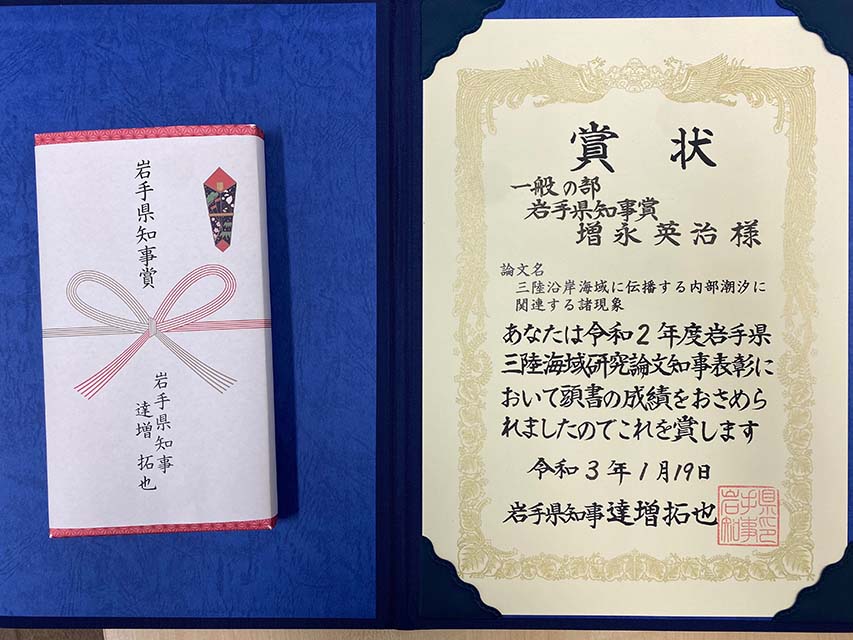 岩手県知事賞
岩手県知事
達増 拓也
賞状
一般の部
岩手県知事賞
増永英治様
論文名
三陸沿岸海域に伝播する内部潮汐に
関連する諸現象
あなたは令和2年度岩手県
三陸海域研究論文知事表彰に
おいて頭書の成績をおさめら
れましたのでこれを賞します
令和3年1月19日
岩手県知事 達増拓也
岩手県
知事印